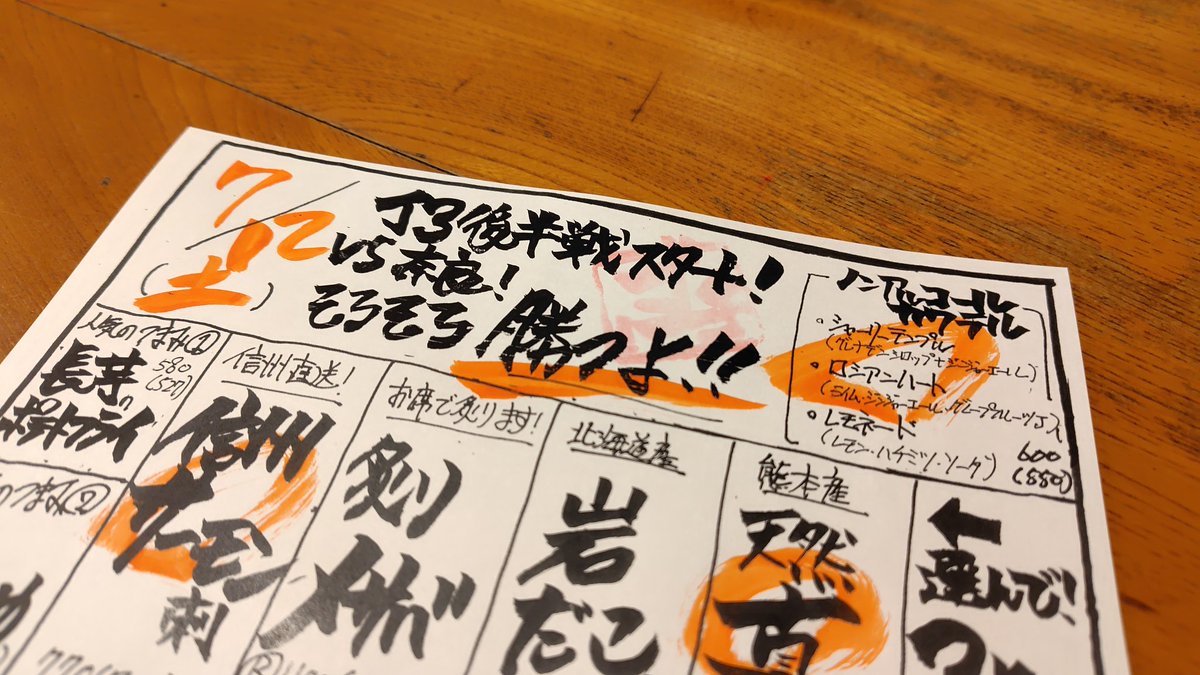 7/12
(土)
J3後半戦スタート!
VS 奈良!
そろそろ勝つよ!!
ノンアルコール
カクテル
・シャーリーテンプル
(グレナデンシロップ・ジンジャーエール)
・ロシアンハート
(ライム・ジンジャーエール・グレープフルーツJ)
・レモネード
(レモン・ハチミツ・ソーダ)
600
人気のつまみ①
580
長芋の
ポテトフライ
つまみ②
信州直送!
信州
サーモン
刺
お席で炙ります!
炙り
〆サバ
北海道産
岩
だこ
熊本産
天然
真
←
選んで!